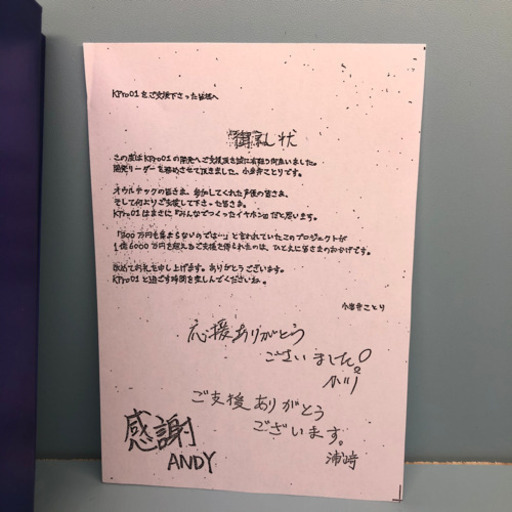 KPro01をご支援下さった皆様へ
御礼状
この度はKPro01の開発へご支援頂き誠に有難う御座いました。
開発リーダーを務めさせて頂きました、小岩井ことりです。
オウルテックの皆さま、参加してくれた声優の皆さま、
そして何よりご支援して下さった皆さま。
KPro01はまさに『みんなでつくったイヤホン』だと思います。
「200万円も集まらないのでは…」と言われていたこのプロジェクトが
1億6000万円を超えるご支援を得られたのは、ひとえに皆さまのおかげです。
改めてお礼を申し上げます。ありがとうございます。
KPro01と過ごす時間を楽しんでくださいね。
小岩井ことり
応援ありがとう
ございました。
ご支援ありがとう
ございます。
浦崎
感謝
ANDY